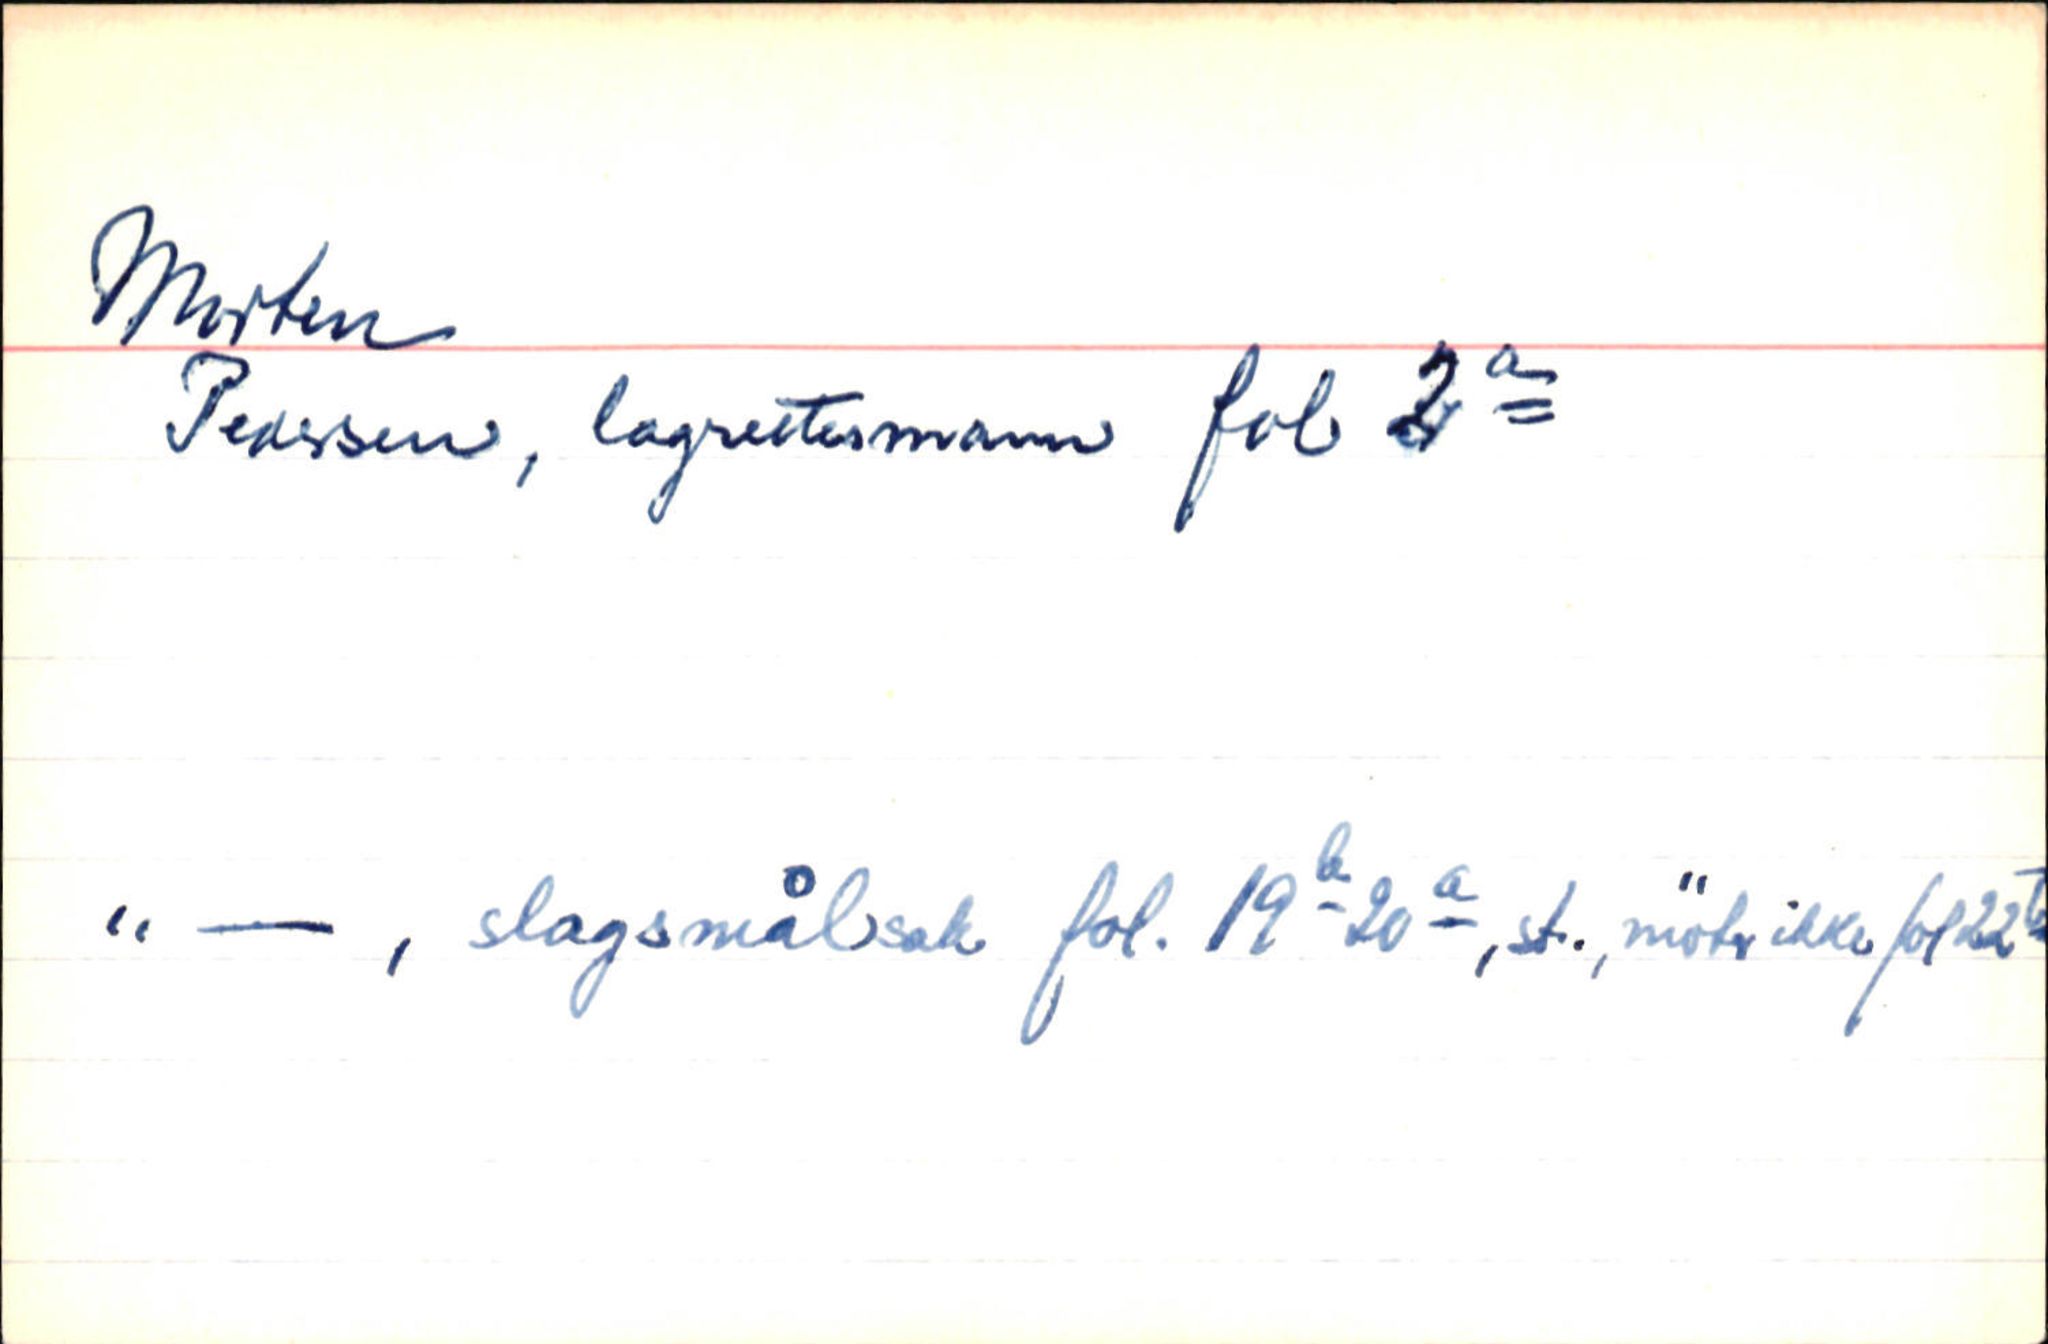 Morten
Pederssen, lagrettesmann fol 2ᵃ
" — , slagsmålsak fol. 19ᵇ-20ᵃ, st., möter ikke fol 22ᵇ